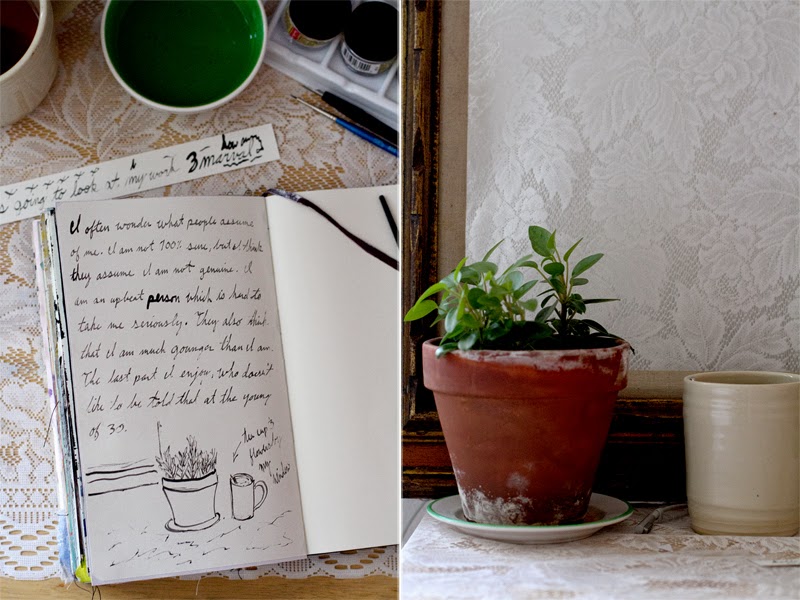 how any
3 marvals
s going to look at my work
I often wonder what people assume
of me. I am not 100% sure, but I think
they assume I am not genuine. I
am an upbeat person which is hard to
take me seriously. They also think
that I am much younger than I am.
The last part I enjoy, who doesn't
like to be told that at the young
of 32.
tea cup &
flowers by
my
window